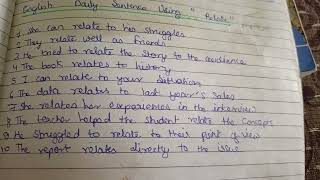 English Daily Sentence Using "Relate"
1 She can relate to his struggles
2 They relate well as friends
3 He tried to relate the story to the audience
4 The book relates to history
5 I can relate to your situation
6 The data relates to last year's sales
7 She relates her experience in the interview
8 The teacher helped the student relate the concepts
9 He struggled to relate to their point of view
10 The report relates directly to the issue